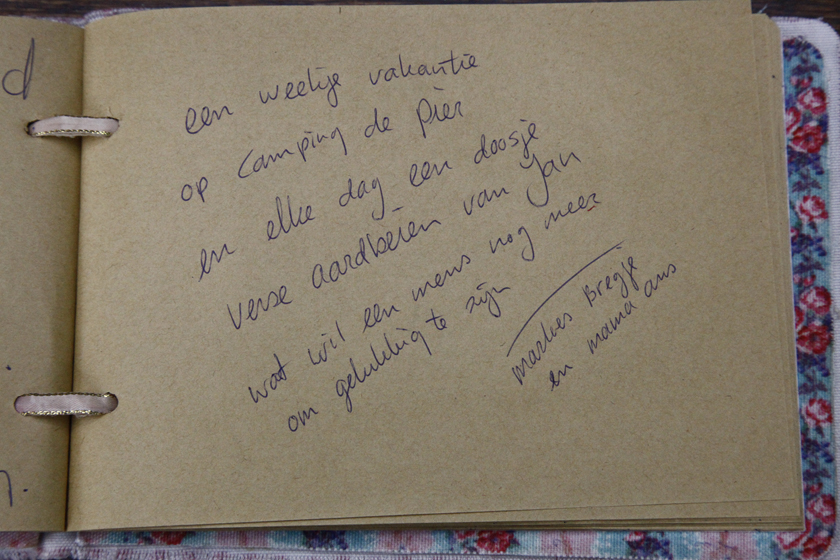 d
een weekje vakantie
op Camping de Pier
en elke dag een doosje
verse aardbeien van Jan
wat wil een mens nog meer
om gelukkig te zijn
Marloes Bregje
en mama ans